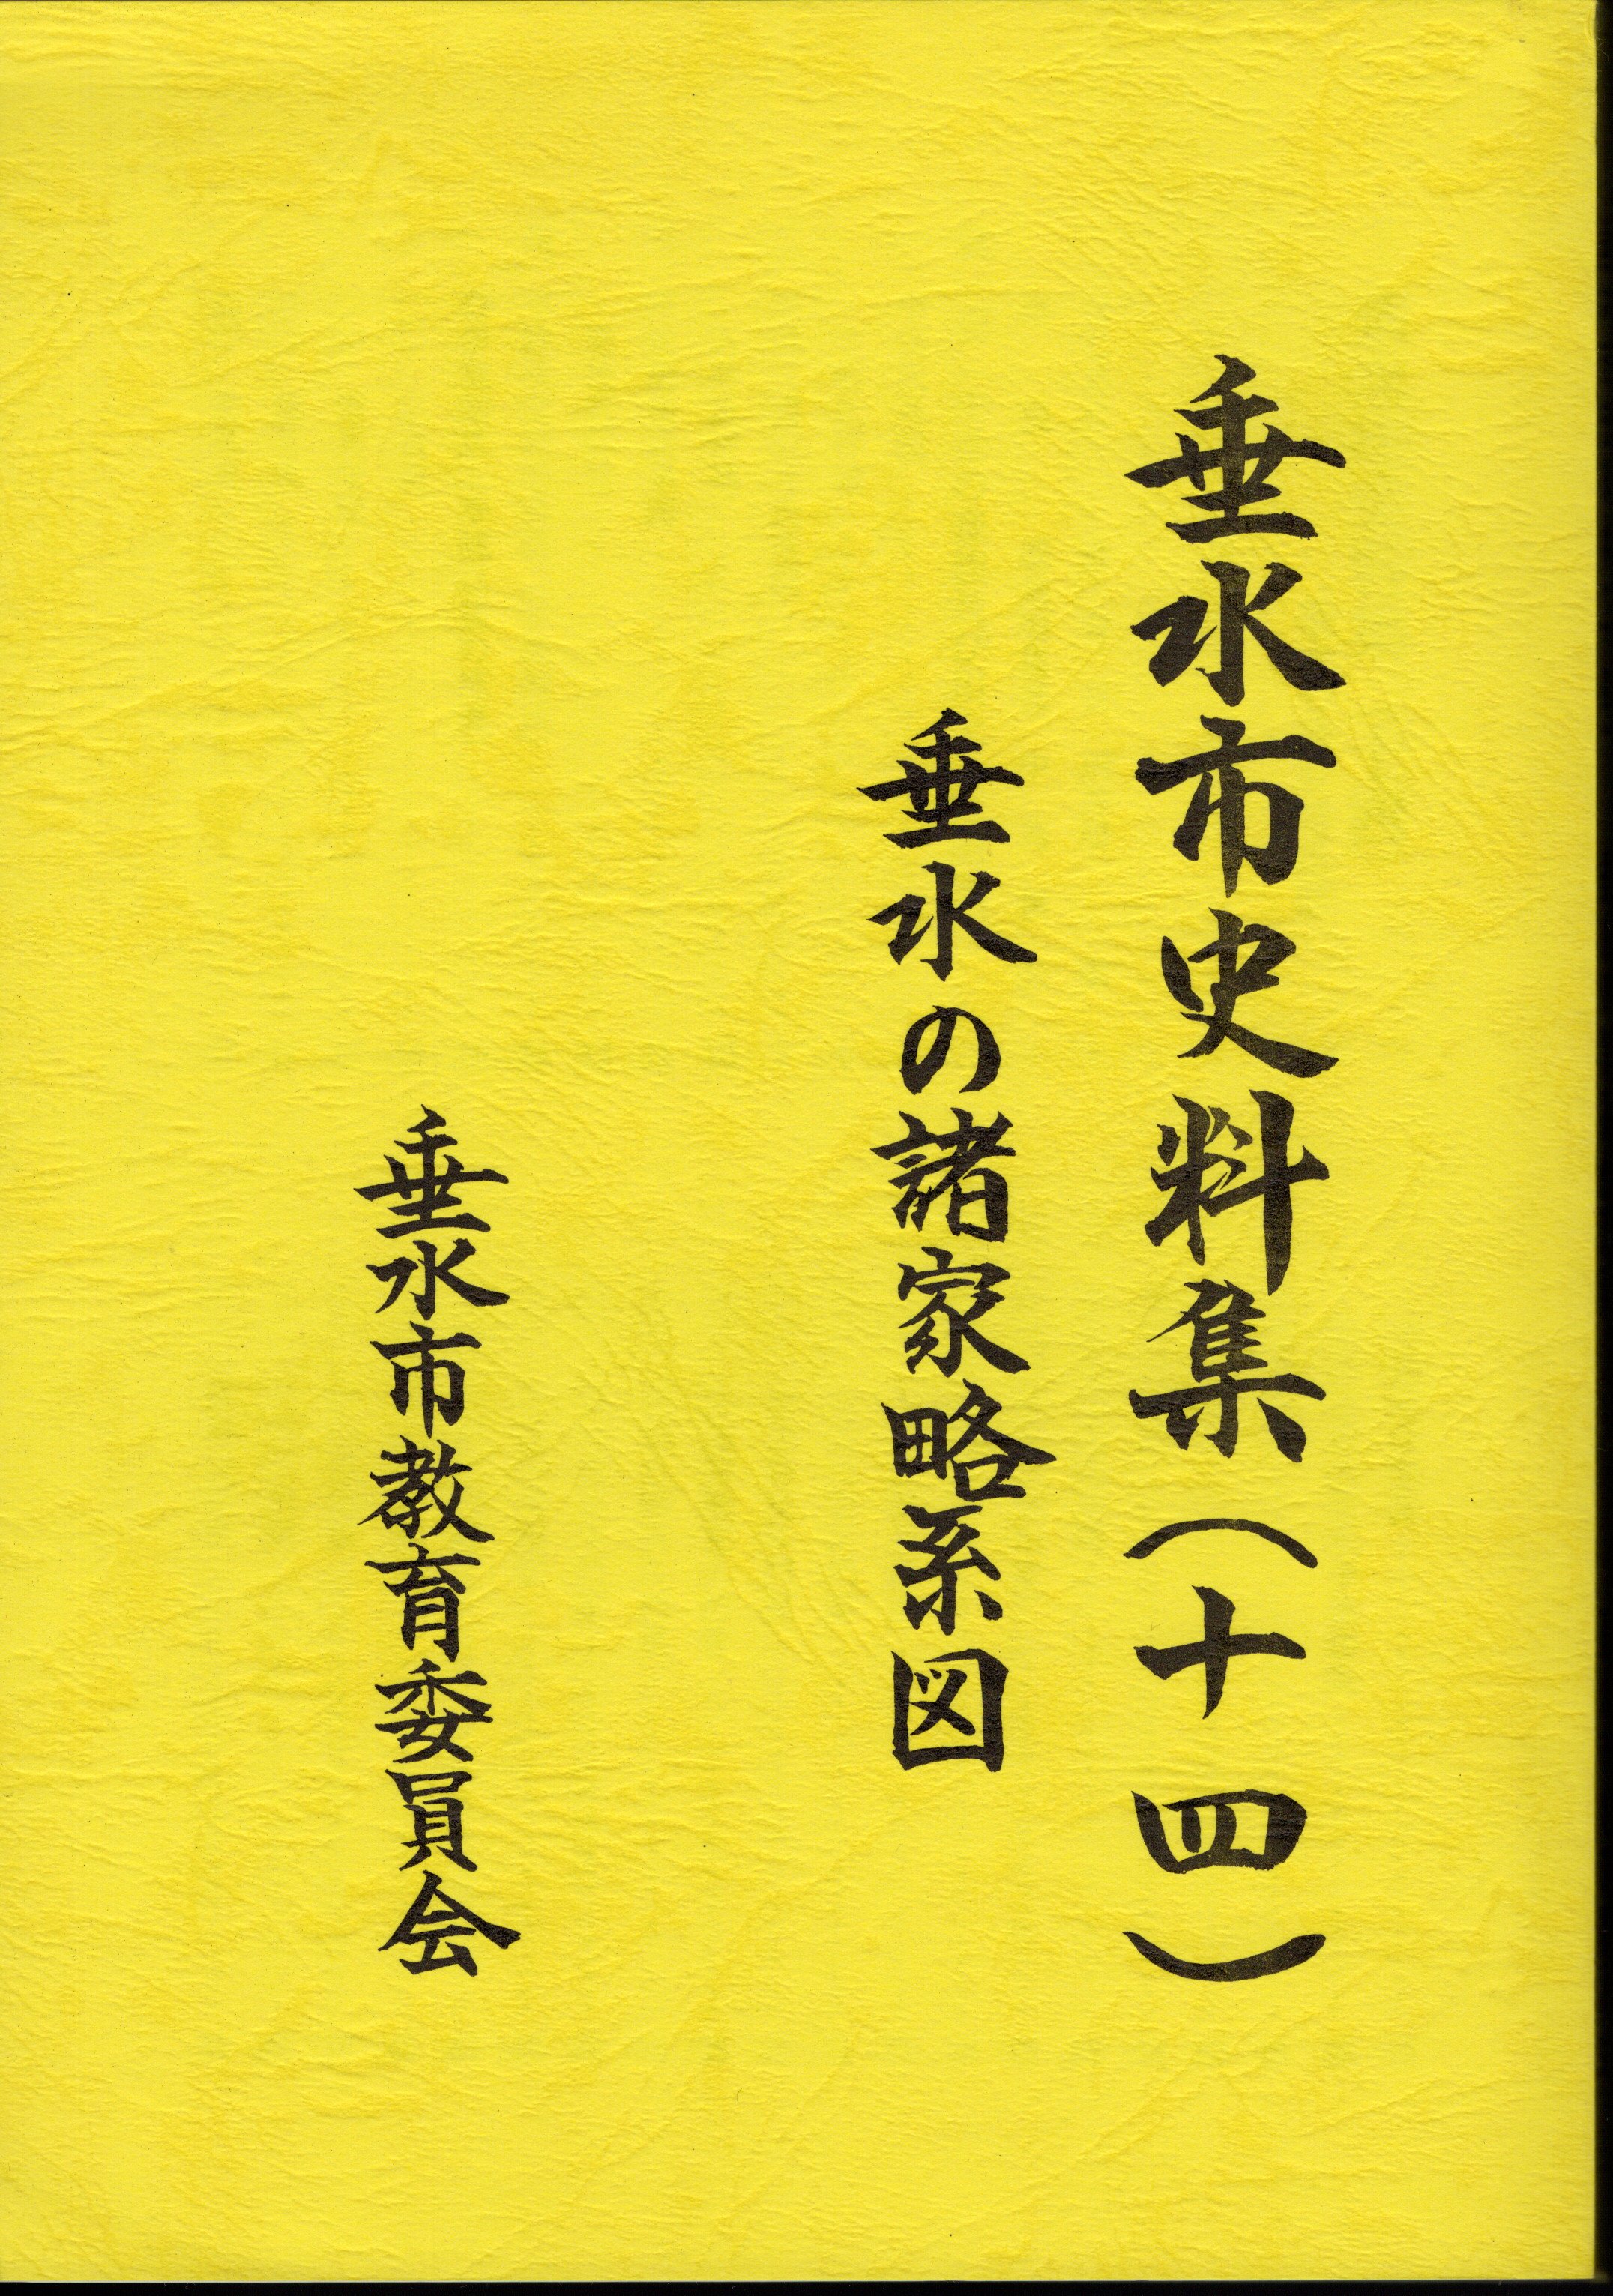 垂水市史料集（十四）
垂水の諸家略系図
垂水市教育委員会